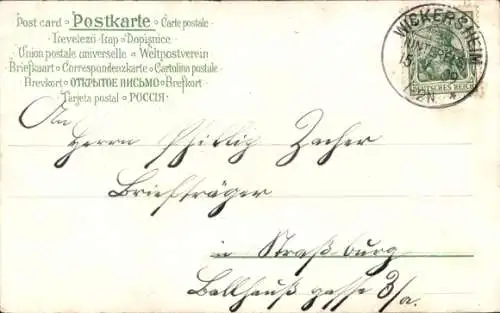 Post card ○ Postkarte ○ Carte postale
Levelező-lap ○ Dopisnice
Union postale universelle ○ Weltpostverein
Briefkaart ○ Correspondenzkarte ○ Cartolina postale
Brevkort ○ ОТКРЫТОЕ ПИСЬМО ○ Brefkort
Tarjeta postal ○ РОССІЯ
WICKERSHEIM
DEUTSCHES REICH
An
Herrn Phillip Zacher
Briefträger
in Straßburg
Ballhauß gasse 3/a.